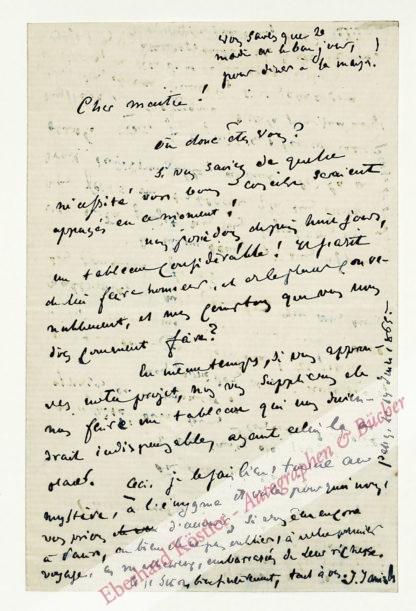 Vous savez que le
mardi est le bon jour,
pour diner à la maison.
Cher maitre!
Où donc êtes vous?
Si vous saviez de quelle
nécessité vos bons conseils seraient
appuyés en ce moment!
nous possédons depuis huit jours,
un tableau considérable! Il faut
de lui faire honneur, et de le placer conve-
nablement, et nous comptons que vous nous
direz comment faire?
En même temps, si vous approu-
vez notre projet, nous vous supplions de
nous faire un tableau qui nous devien-
drait indispensable, ayant celui là
placé. Ceci, je le sais bien, tourne au
mystère, à l'énigme et voilà pourquoi nous
vous prions d'accourir si vous êtes encore
à Paris, ou bien
voyage,
tout à vous. J. Janin
Passy, 14 juin 1865.
Eberhard Köstler - Autographen & Bücher